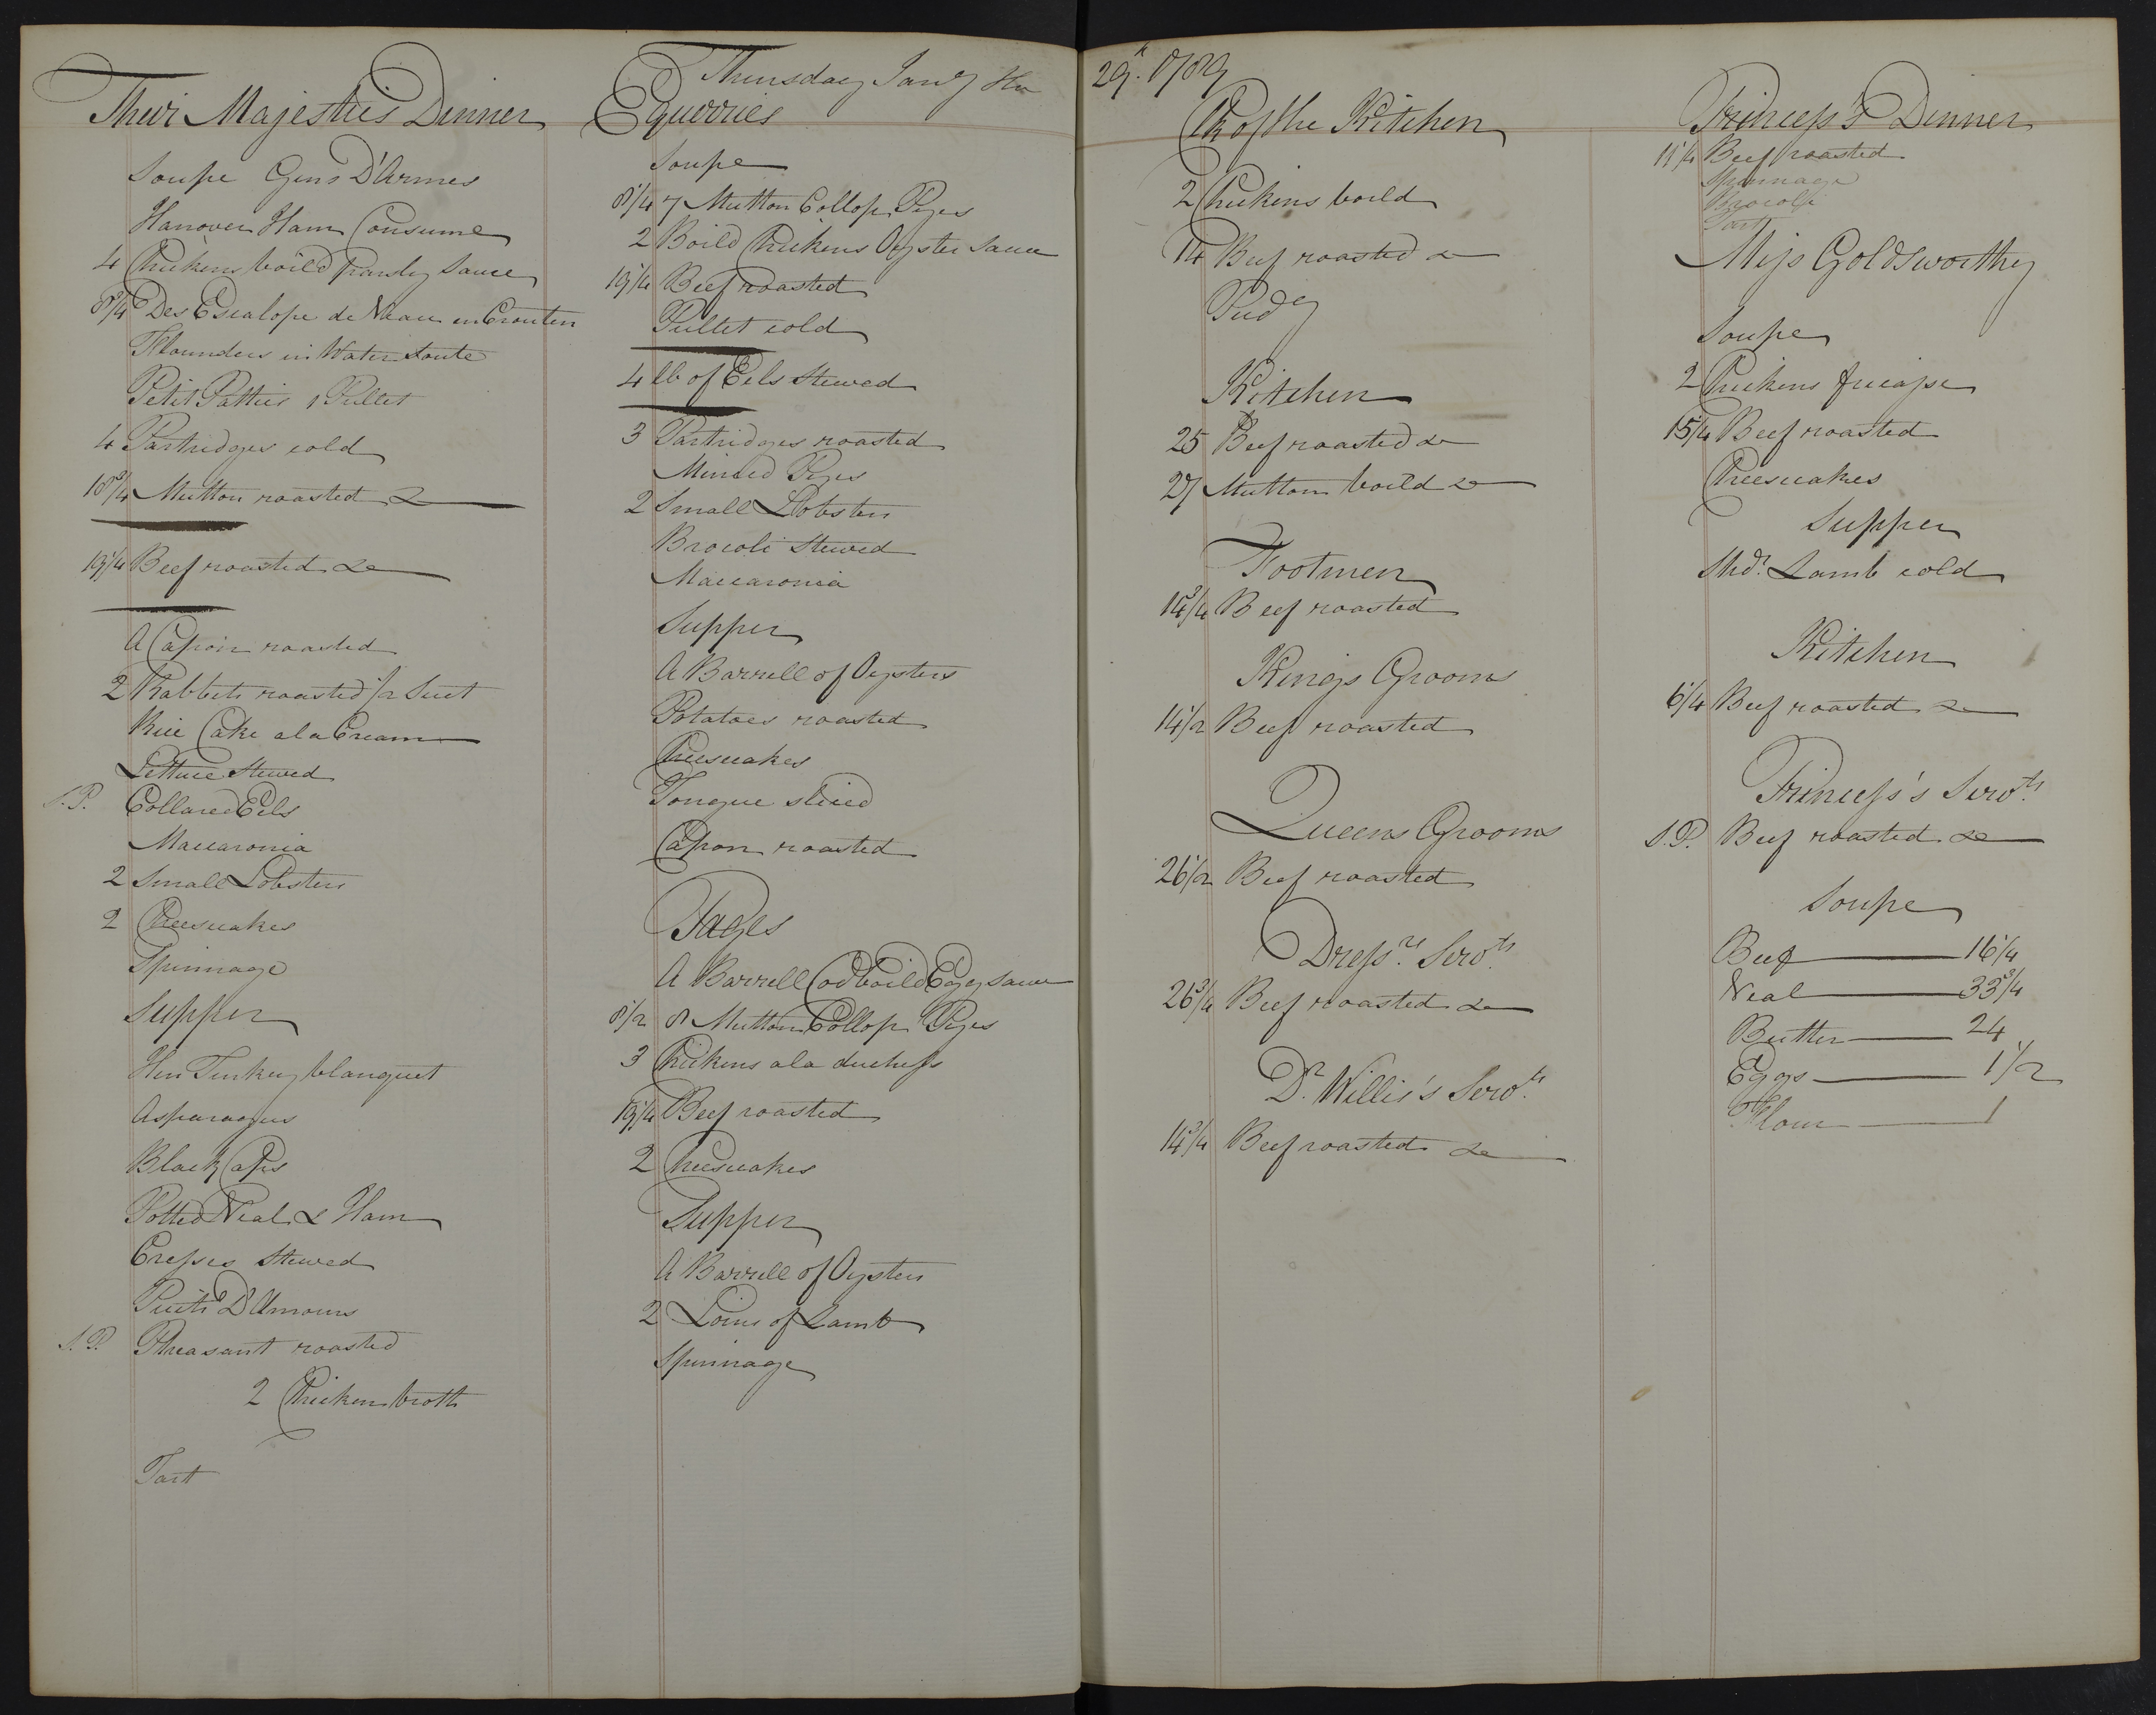 Thursday Jany the 29th 1789
Their Majesties Dinner
Soupe Gens D'Armes
Hanover Ham Consume
4 Chickens boild Parsley Sauce
8 3/4 Des Escalope de Veaux en Crouten
Flounders in Water Soute
Petit Patties 1 Pullet
4 Partridges cold
18 3/4 Mutton roasted &
19 1/4 Beef roasted &c
A Capon roasted
2 Rabbets roasted 1/2 Suet
Rice Cake a la Cream
Lettuce Stewed
S.P. Collared Eels
Maccaronia
2 Small Lobsters
2 Cheescakes
Spinnage
Supper
Hen Turkey blanquet
Asparagus
Black Caps
Potted Veal & Ham
Cresses Stewed
Puits D'Amours
S.P. Pheasant roasted
2 Chicken broth
Tart
Equerries
Soupe
8 1/4 7 Mutton Collop Pyes
2 Boild Chickens Oyster Sauce
19 1/4 Beef roasted
Pullet cold
4 lb of Eels Stewed
3 Partridges roasted
Minced Pyes
2 Small Lobsters
Brocoli Stewed
Maccaronia
Supper
A Barrell of Oysters
Potatoes roasted
Cheescakes
Tongue sliced
Capon roasted
Pages
A Barrell Cod boild Egg sauce
8 1/2 8 Mutton Collop Pyes
3 Chickens a la duchess
19 1/4 Beef roasted
2 Cheescakes
Supper
A Barrell of Oysters
2 Loins of Lamb
Spinnage
Ck of the Kitchen
2 Chickens boild
14 Beef roasted &
Pudg
Kitchen
25 Beef roasted &
27 Mutton boild &
Footmen
14 3/4 Beef roasted
Kings Grooms
14 1/2 Beef roasted
Queens Grooms
26 1/2 Beef roasted
Dressrs Servts
26 3/4 Beef roasted &
Dr. Willis's Servts
14 3/4 Beef roasted &
Princess's Dinner
11 1/4 Beef roasted
Spinnage
Brocoli
Tart
Miss Goldsworthy
Soupe
2 Chickens fricasse
15 1/4 Beef roasted
Cheescakes
Supper
Shdr. Lamb cold
Kitchen
6 1/4 Beef roasted &
Princess's Servts
S.P. Beef roasted &c
Soupe
Beef 16 1/4
Veal 33 3/4
Butter 24
Eggs 1 1/2
Flour 1